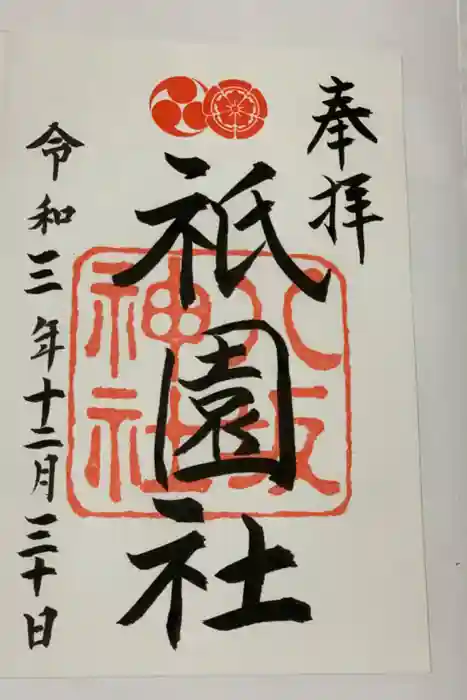 奉拝
祇園社
八坂
神社
令和三年十二月三十日